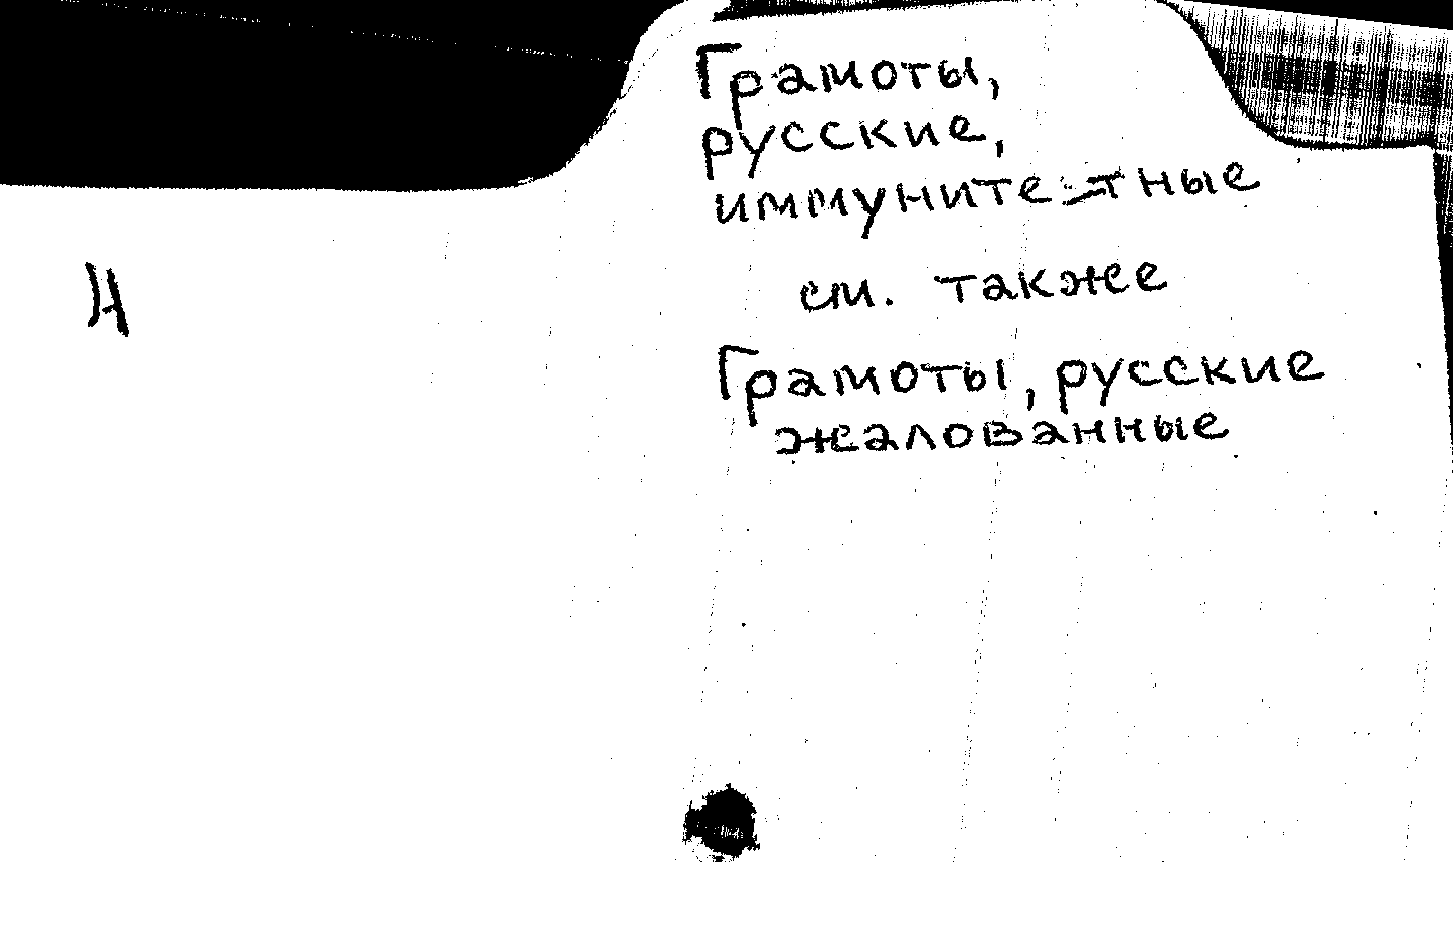 Грамоты,
русские,
иммунитетные
см. также
Ч
Грамоты, русские
жалованные